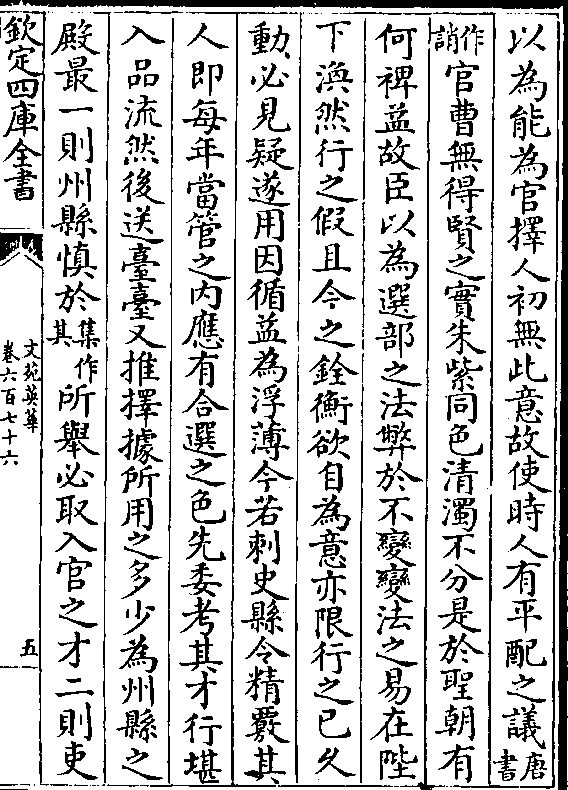 以為能為官擇人初無此意故使時人有平配之議唐書
作誚官曹無得賢之實朱紫同色清濁不分是於聖朝有
何裨益故臣以為選部之法弊於不變變法之易在陛
下渙然行之假且今之銓衡欲自為意亦限行之已久
動必見疑遂用因循益為浮薄今若刺史縣令精覈其
人即每年當管之內應有合選之色先委考其才行堪
入品流然後送臺臺又推擇據所用之多少為州縣之
殿最一則州縣慎於集作其所舉必取入官之才二則吏
欽定四庫全書
文苑英華
卷六百七十六
五